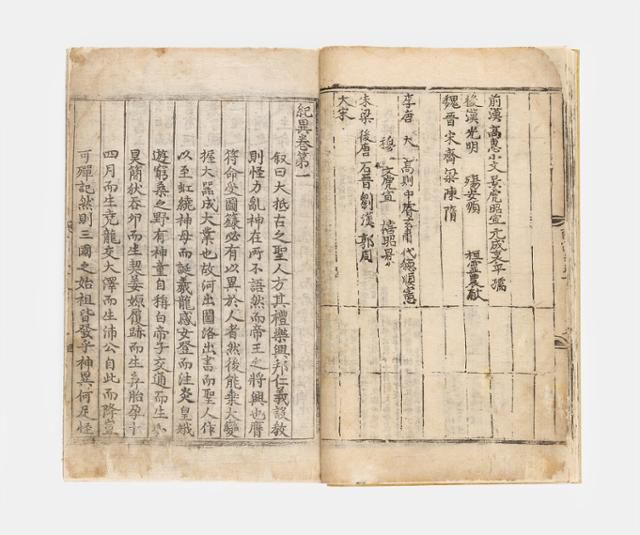 前漢 高惠小文景虎昭宣元成哀平孺
後漢光明 殤安順 桓靈農獻
魏晉宋齊梁陳隋
李唐 大 高則中睿玄肅代德順憲
穆 文虎宣 昭景
朱梁後唐石晉劉漢郭周
大宋
紀異卷第一
叙曰大抵古之聖人方其禮樂興邦仁義設教
則怪力亂神在所不語然而帝王之將興也膺
符命受圖籙必有以異於人者然後能乘大變
握大器成大業也故河出圖洛出書而聖人作
以至虹繞神母而誕羲龍感女登而注炎皇娥
遊窮桑之野有神童自稱白帝子交通而生小
昊簡狄吞卵而生契姜嫄履跡而生弃胎孕十
四月而生堯龍交大澤而生沛公自此而降豈
可殫記然則三國之始祖皆發乎神異何足怪